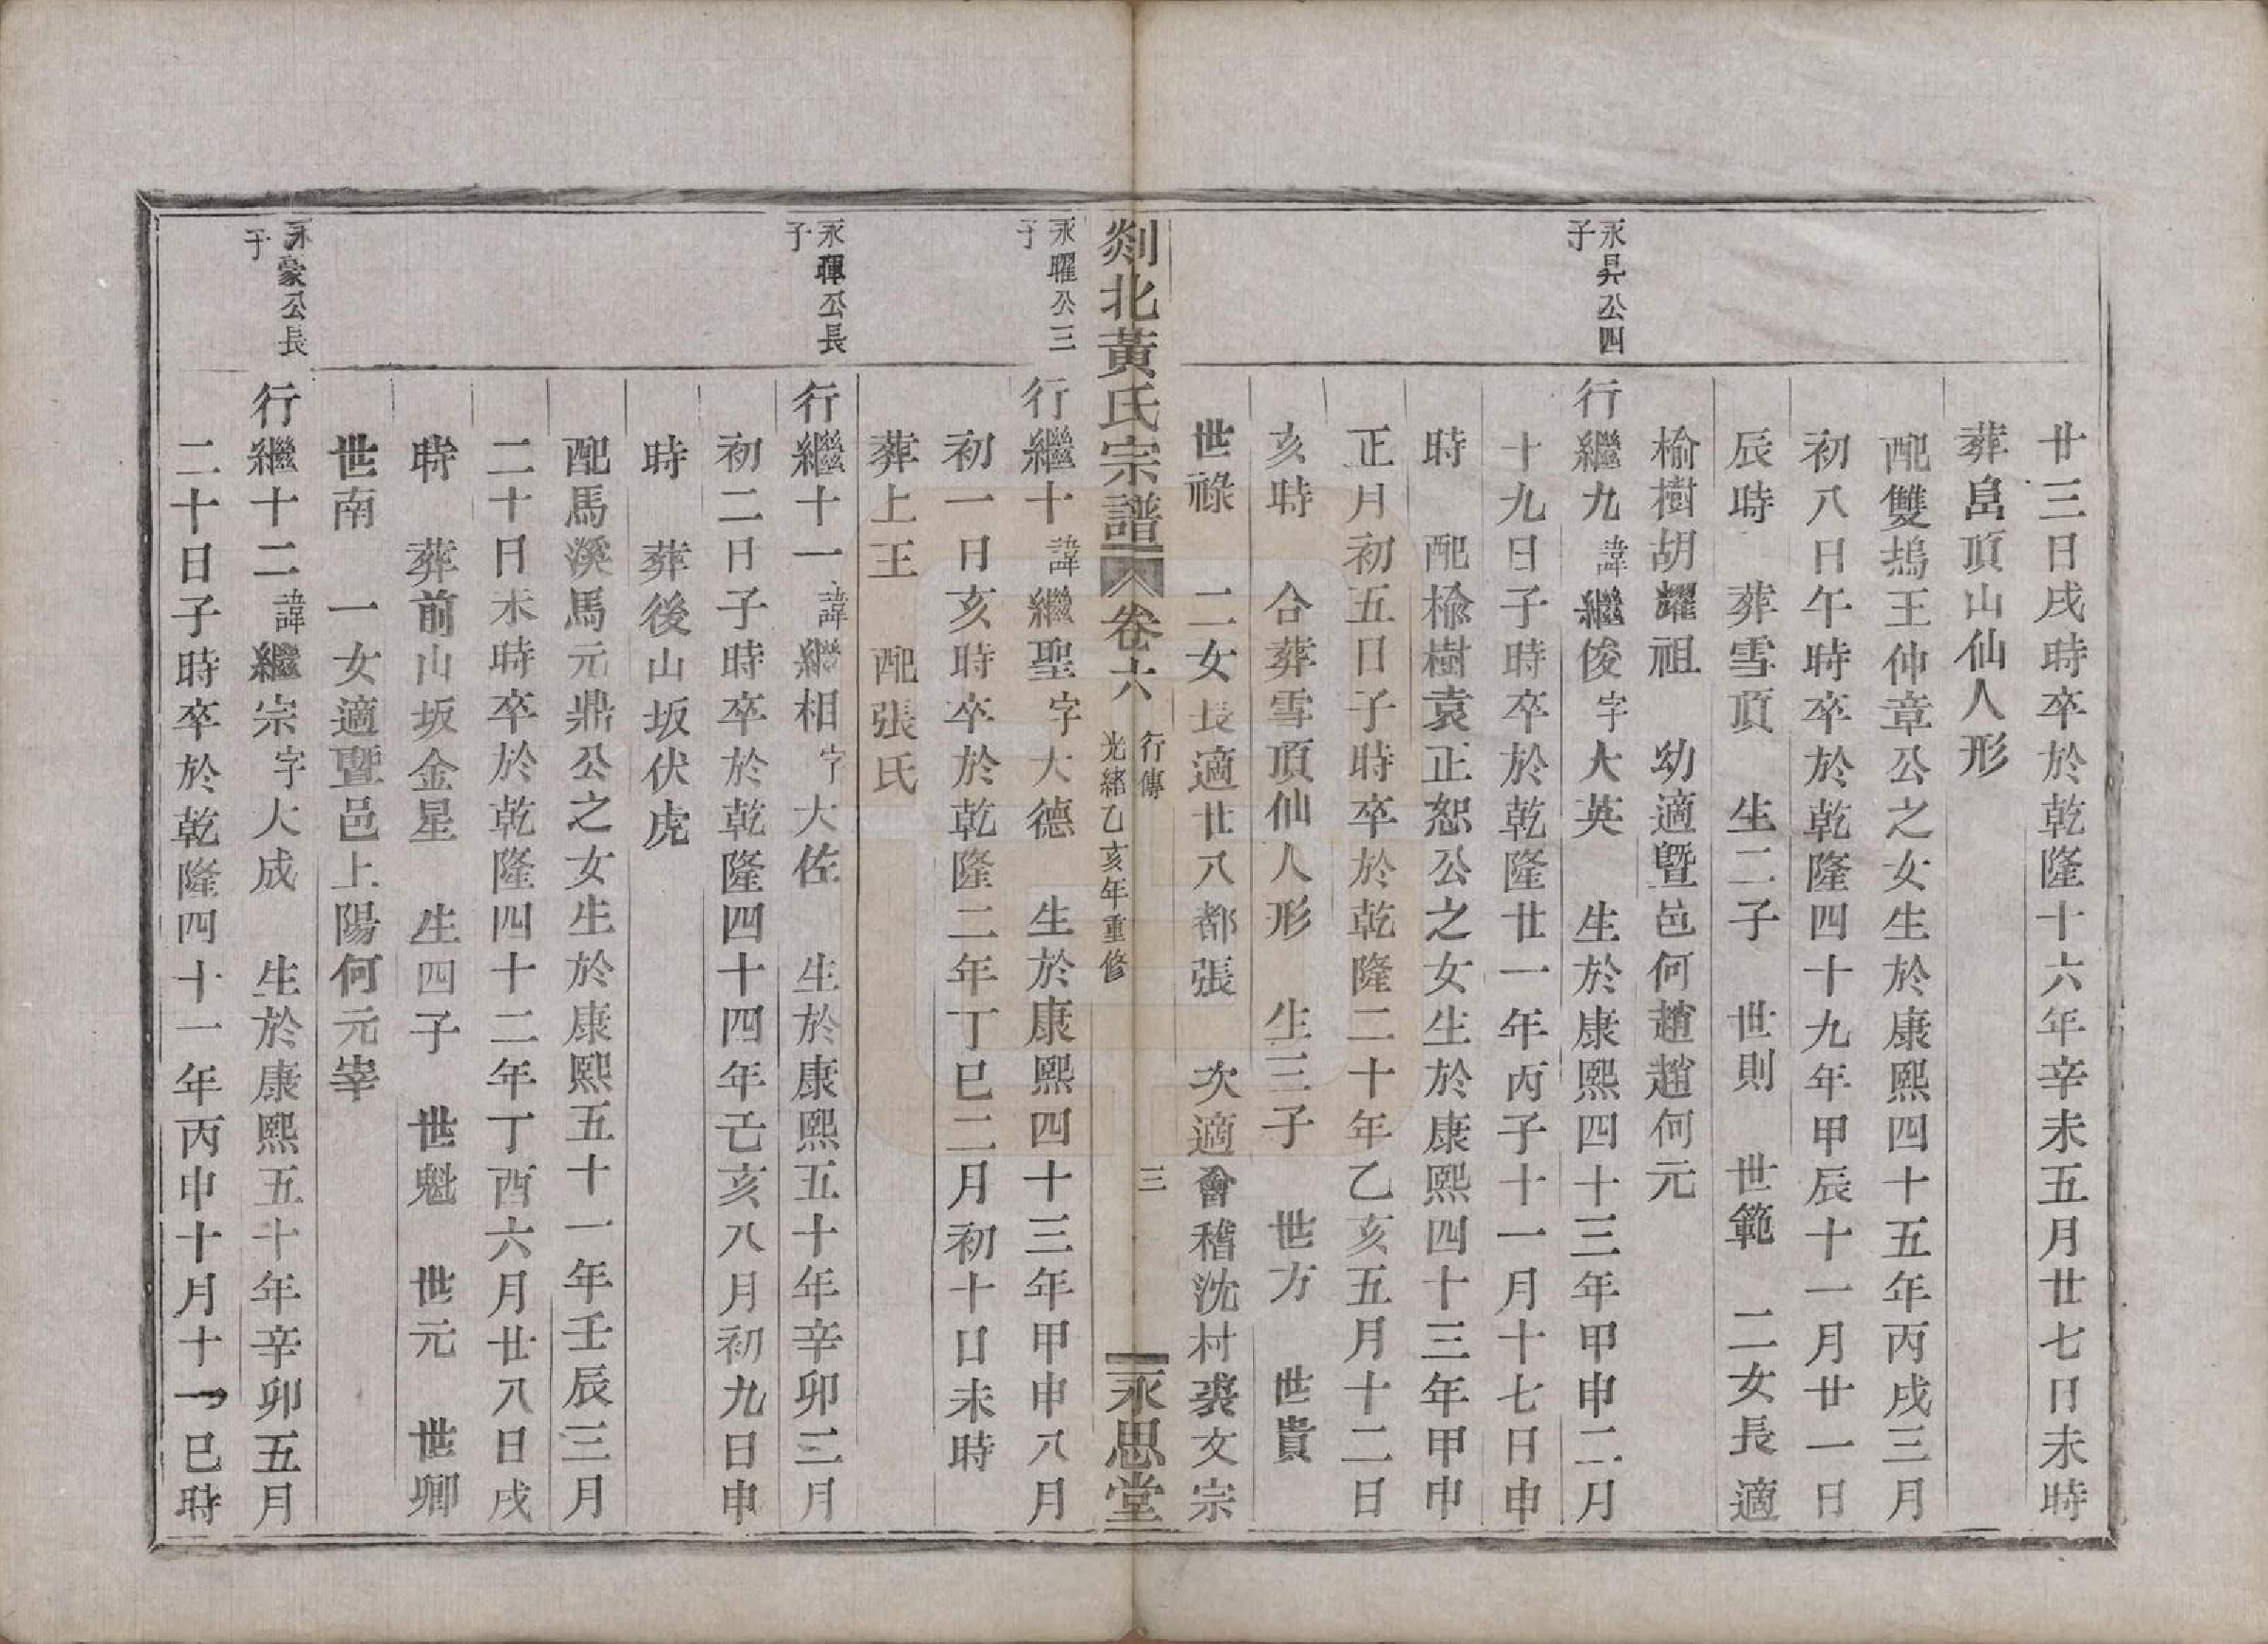 廿三日戌時卒於乾隆十六年辛未五月廿七日未時
葬峊頂山仙人形
配雙塢王仲章公之女生於康熙四十五年丙戌三月
初八日午時卒於乾隆四十九年甲辰十一月廿一日
辰時　葬雪頂　生二子　世則　世範　二女長適
榆樹胡耀祖　幼適暨邑何趙趙何元
永昇公四子
行繼九諱繼俊字大英　生於康熙四十三年甲申二月
十九日子時卒於乾隆廿一年丙子十一月十七日申
時　配榆樹袁正恕公之女生於康熙四十三年甲申
正月初五日子時卒於乾隆二十年乙亥五月十二日
亥時　合葬雪頂仙人形　生三子　世方　世貴
世祿　二女長適廿八都張　次適會稽沈村裘文宗
剡北黃氏宗譜　卷六　行傳　光緒乙亥年重修　三　永思堂
永曜公三子
行繼十諱繼聖字大德　生於康熙四十三年甲申八月
初一日亥時卒於乾隆二年丁巳二月初十日未時
葬上王　配張氏
永琿公長子
行繼十一諱繼相字大佐　生於康熙五十年辛卯三月
初二日子時卒於乾隆四十四年己亥八月初九日申
時　葬後山坂伏虎
配馬溪馬元鼎公之女生於康熙五十一年壬辰三月
二十日未時卒於乾隆四十二年丁酉六月廿八日戌
時　葬前山坂金星　生四子　世魁　世元　世卿
世南　一女適暨邑上陽何元宰
永豪公長子
行繼十二諱繼宗字大成　生於康熙五十年辛卯五月
二十日子時卒於乾隆四十一年丙申十月十一巳時